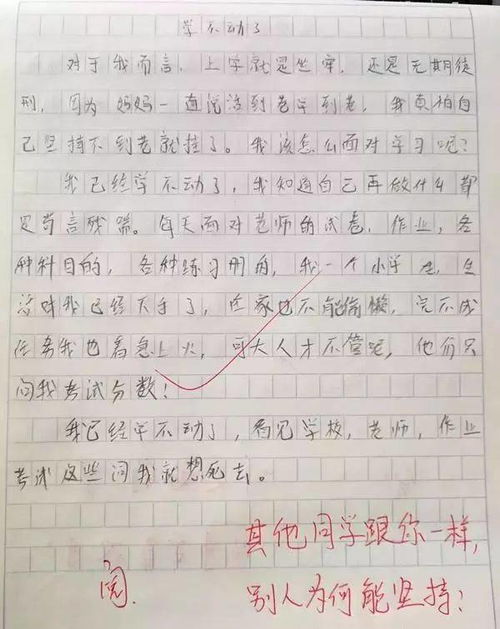 学不动了
对于我而言，上学就是坐牢，还是无期徒
刑，因为妈妈一直说活到老学到老，我真怕自
己坚持不到老就挂了。我该怎么面对学习呢？
我已经学不动了，我知道自己再做什么都
是苟言残喘。每天面对老师的试卷，作业，各
种科目的，各种练习册的，我一个小学生，生
活对我已经下手了，在家也不能偷懒，完不成
任务我也着急上火，可大人才不管呢，他们只
问我考试分数！
我已经学不动了，看见学校，老师，作业
考试这些词我就想死去。
其他同学跟你一样，
阅.
别人为何能坚持？